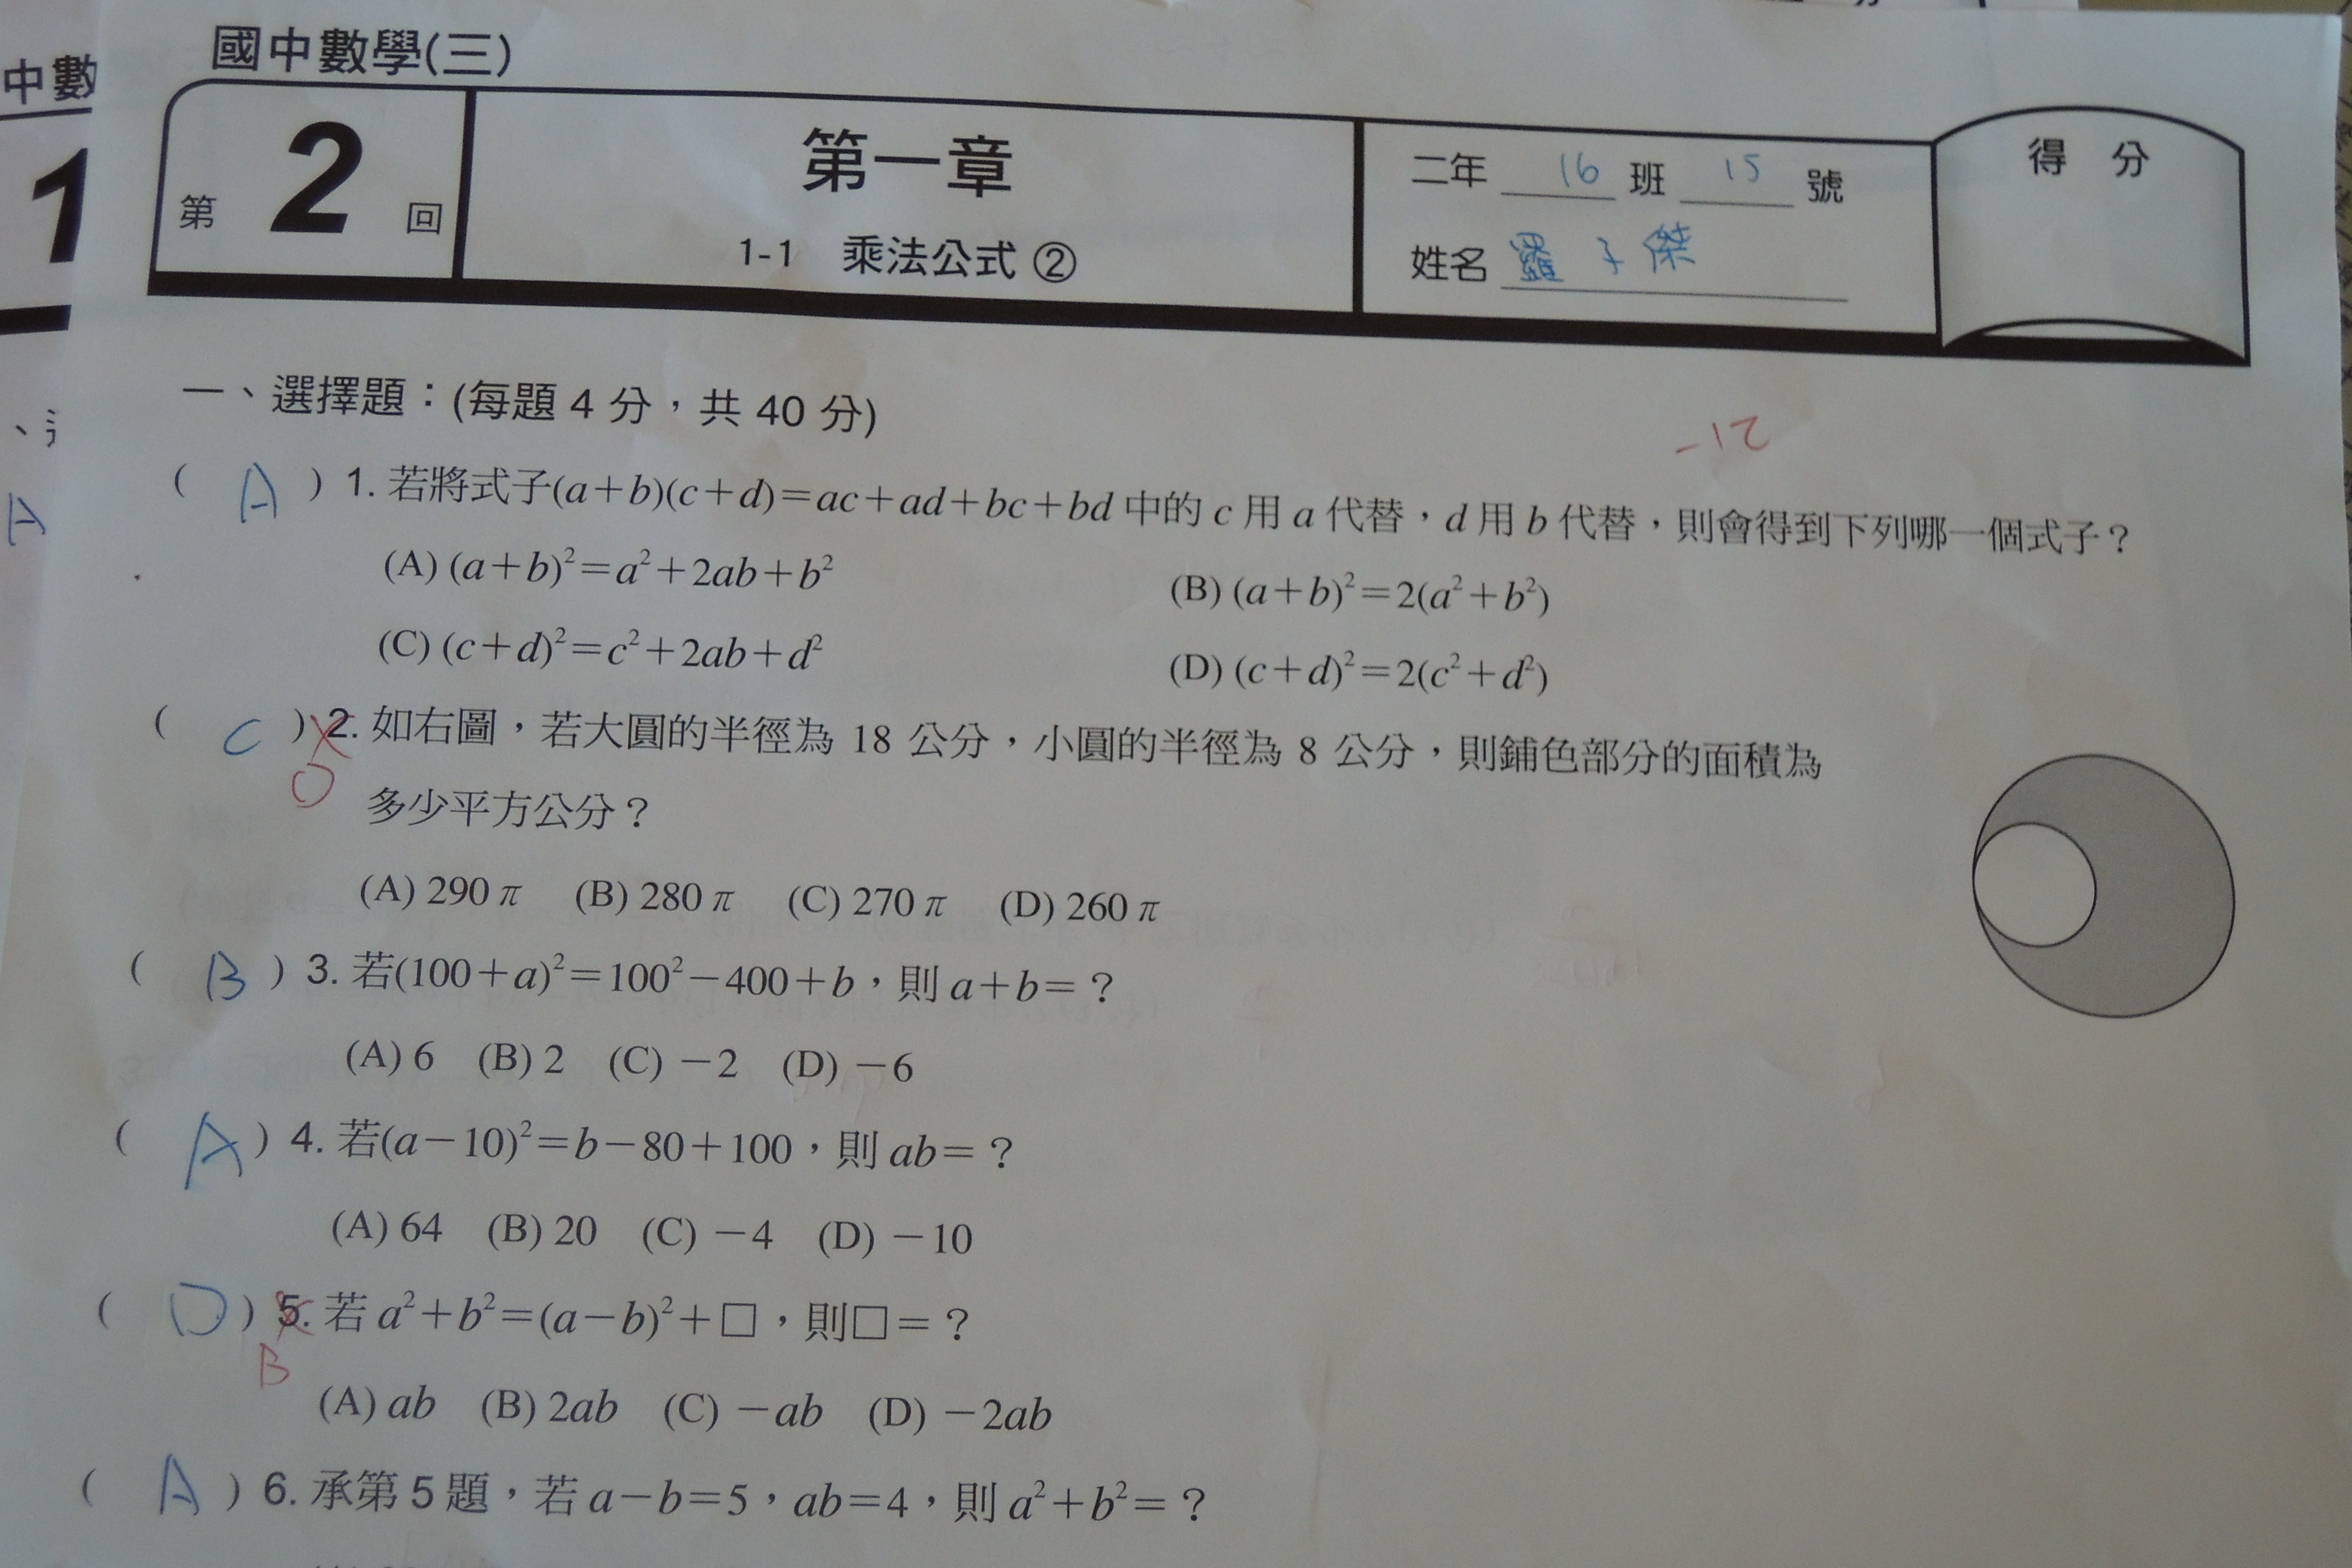 國中數學(三)
中數
1
第 2 回
第一章
1-1 乘法公式 ②
二年 16 班 15 號
姓名 羅子傑
得 分
一、選擇題：(每題 4 分，共 40 分)
-12
( A ) 1. 若將式子(a+b)(c+d)=ac+ad+bc+bd 中的 c 用 a 代替，d 用 b 代替，則會得到下列哪一個式子？
(A) (a+b)²=a²+2ab+b² (B) (a+b)²=2(a²+b²)
(C) (c+d)²=c²+2ab+d² (D) (c+d)²=2(c²+d²)
( C ) 2. 如右圖，若大圓的半徑為 18 公分，小圓的半徑為 8 公分，則鋪色部分的面積為
D
多少平方公分？
(A) 290π (B) 280π (C) 270π (D) 260π
( B ) 3. 若(100+a)²=100²−400+b，則 a+b=？
(A) 6 (B) 2 (C) −2 (D) −6
( A ) 4. 若(a−10)²=b−80+100，則 ab=？
(A) 64 (B) 20 (C) −4 (D) −10
( D ) 5. 若 a²+b²=(a−b)²+□，則□=？
B
(A) ab (B) 2ab (C) −ab (D) −2ab
( A ) 6. 承第 5 題，若 a−b=5，ab=4，則 a²+b²=？
A